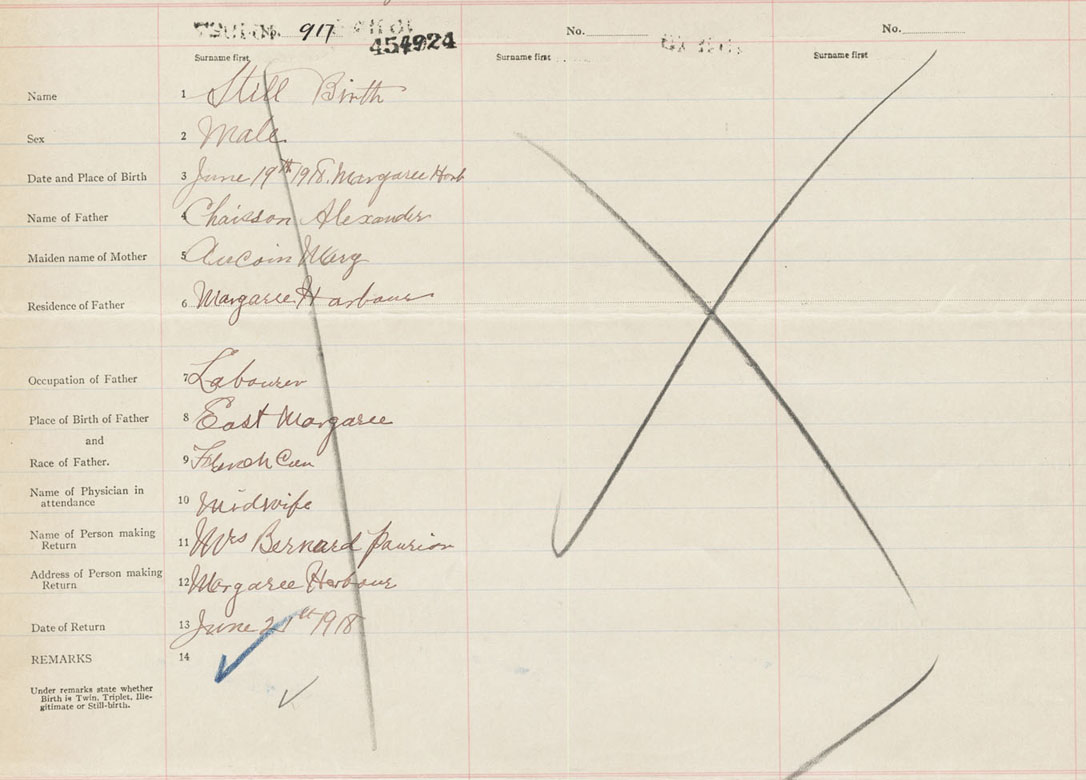 No. 917
454924
No.
No.
Surname first
Surname first
Surname first
Name 1 Still Birth
Sex 2 Male
Date and Place of Birth 3 June 19th 1918. Margaree Harb
Name of Father 4 Chaisson Alexander
Maiden name of Mother 5 Aucoin Mary
Residence of Father 6 Margaree Harbour
Occupation of Father 7 Labourer
Place of Birth of Father 8 East Margaree
and
Race of Father. 9 French Can
Name of Physician in
attendance 10 Midwife
Name of Person making
Return 11 Mrs Bernard
Address of Person making
Return 12 Margaree Harbour
Date of Return 13 June 21th 1918
REMARKS 14
Under remarks state whether
Birth is Twin, Triplet, Ille-
gitimate or Still-birth.